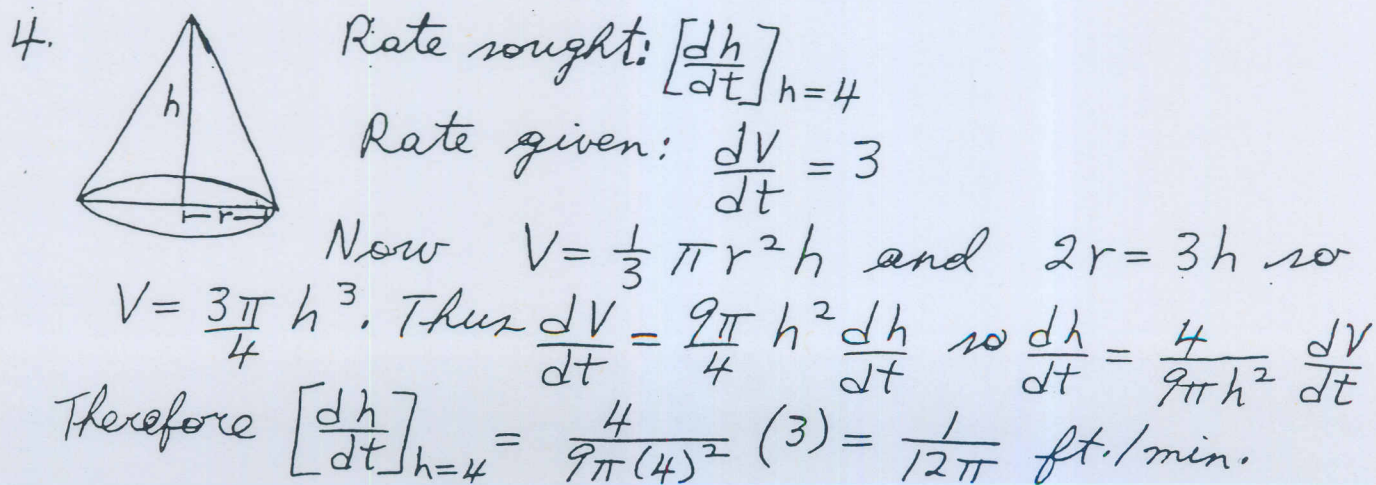 4.
h
r
Rate sought: [dh/dt]_{h=4}
Rate given: dV/dt = 3
Now V = 1/3 πr²h and 2r = 3h so
V = 3π/4 h³. Thus dV/dt = 9π/4 h² dh/dt so dh/dt = 4/(9πh²) dV/dt
Therefore [dh/dt]_{h=4} = 4/(9π(4)²) (3) = 1/(12π) ft./min.